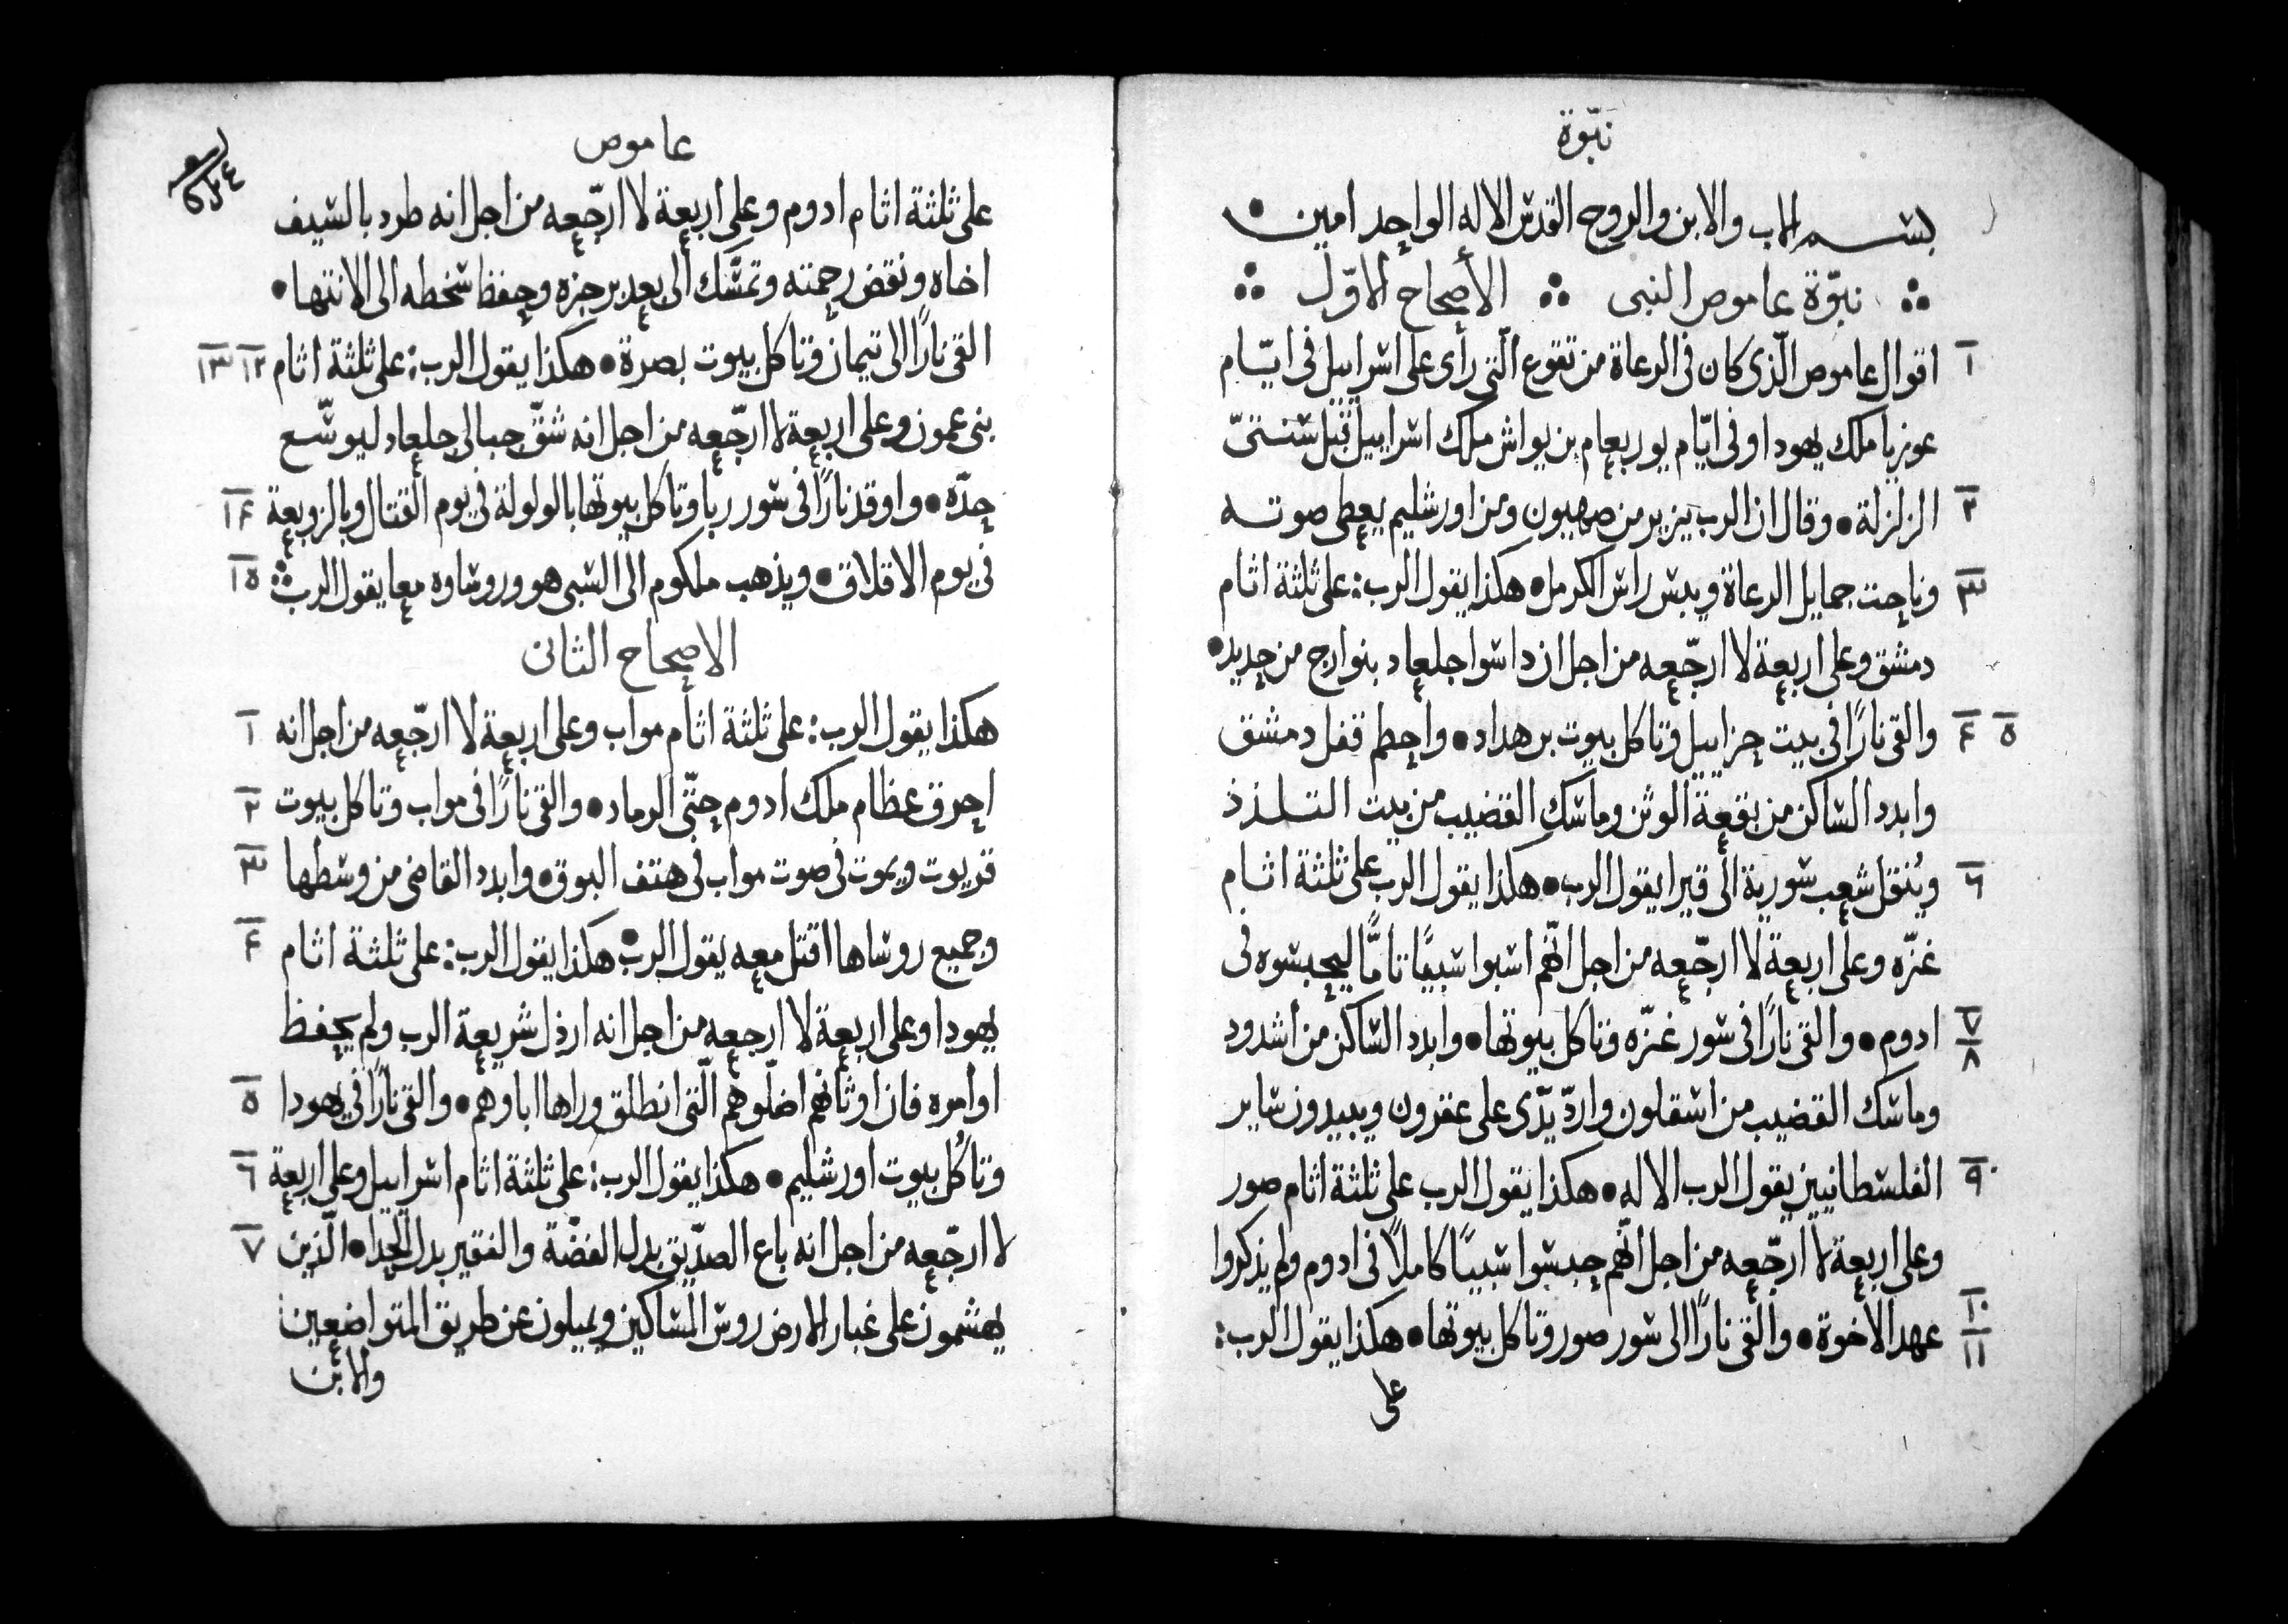 نبّوة
بسم الاب والابن والروح القدس الاله الواحد امين
نبوّة عاموص النبى الأصحاح الاوّل
١ اقوال عاموص الّذى كان فى الرعاة من تقوع الّتى رأى على اسراييل فى ايّام
عوزيا ملك يهودا وفى ايّام يوربعام بن يواش ملك اسراييل قبل سنتىّ
٢ الزلزلة • وقال ان الرب يزير من صهيون ومن اورشليم يعطى صوته
٣ وناحت جمايل الرعاة ويبس راس الكرمل • هكذا يقول الرب : على ثلثة اثام
دمشق وعلى اربعة لا ارجّعه من اجل ان داسوا جلعاد بنوارج من حديد •
٤ ٥ والقى نارًا فى بيت حزاييل وتاكل بيوت بن هداد • واحطم قفل دمشق
وابدد الساكن من بقعة الوثن وماسك القضيب من بيت التلذذ
٦ ويُنقل شعب سورية الى قيرا يقول الرب • هكذا يقول الرب على ثلثة اثام
غزّه وعلى اربعة لا ارجّعه من اجل انّهم اسبوا سبيًا تامًّا ليحبسوه فى
٧ ٨ ادوم • والقى نارًا فى سور غزّه وتاكل بيوتها • وابدد الساكن من اشدود
وماسك القضيب من اسقلون واردّ يدّى على عقرون ويبيدون ساير
٩ الفلسطانيين يقول الرب الاله • هكذا يقول الرب على ثلثة اثام صور
وعلى اربعة لا ارجّعه من اجل انّهم حبسوا سبيًا كاملاً فى ادوم ولم يذكروا
١٠ ١١ عهد الاخوة • والقى نارًا الى سور صور وتاكل بيوتها • هكذا يقول الرب :
على
عاموص
على ثلثة اثام ادوم وعلى اربعة لا ارجّعه من اجل انه طرد بالسيف
اخاه ونقض رحمته وتمسّك الى بعد برجزه وحفظ سخطه الى الانتها •
القى نارًا الى تيمان وتاكل بيوت بصرة • هكذا يقول الرب : على ثلثة اثام ١٢ ١٣
بنى عمون وعلى اربعة لا ارجّعه من اجل انه شقّ حبالى جلعاد ليوسّع
حدّه • واوقد نارًا فى سور ربا وتاكل بيوتها بالولولة فى يوم القتال وبالزوبعة ١٤
فى يوم الاقلاق • ويذهب ملكوم الى السبى هو وروساوه معا يقول الرب ١٥
الاصحاح الثانى
هكذا يقول الرب : على ثلثة اثام مواب وعلى اربعة لا ارجّعه من اجل انه ١
احرق عظام ملك ادوم حتّى الرماد • والقى نارًا فى مواب وتاكل بيوت ٢
قريوت ويموت فى صوت مواب فى هتف البوق • وابدد القاضى من وسطها ٣
وجميع روساها اقتل معه يقول الرب • هكذا يقول الرب : على ثلثة اثام ٤
يهودا وعلى اربعة لا ارجعه من اجل انه ارذل شريعة الرب ولم يحفظ
اوامره فان اوثانهم اضلّوهم الّتى انطلق وراها اباوهم • والقى نارًا فى يهودا ٥
وتاكُل بيوت اورشليم • هكذا يقول الرب : على ثلثة اثام اسراييل وعلى اربعة ٦
لا ارجّعه من اجل انه باع الصدّيق بدل الفضّة والفقير بدل الحذا • الّذين ٧
يهشمون على غبار الارض روس المساكين ويميلون عن طريق المتواضعين
والابن